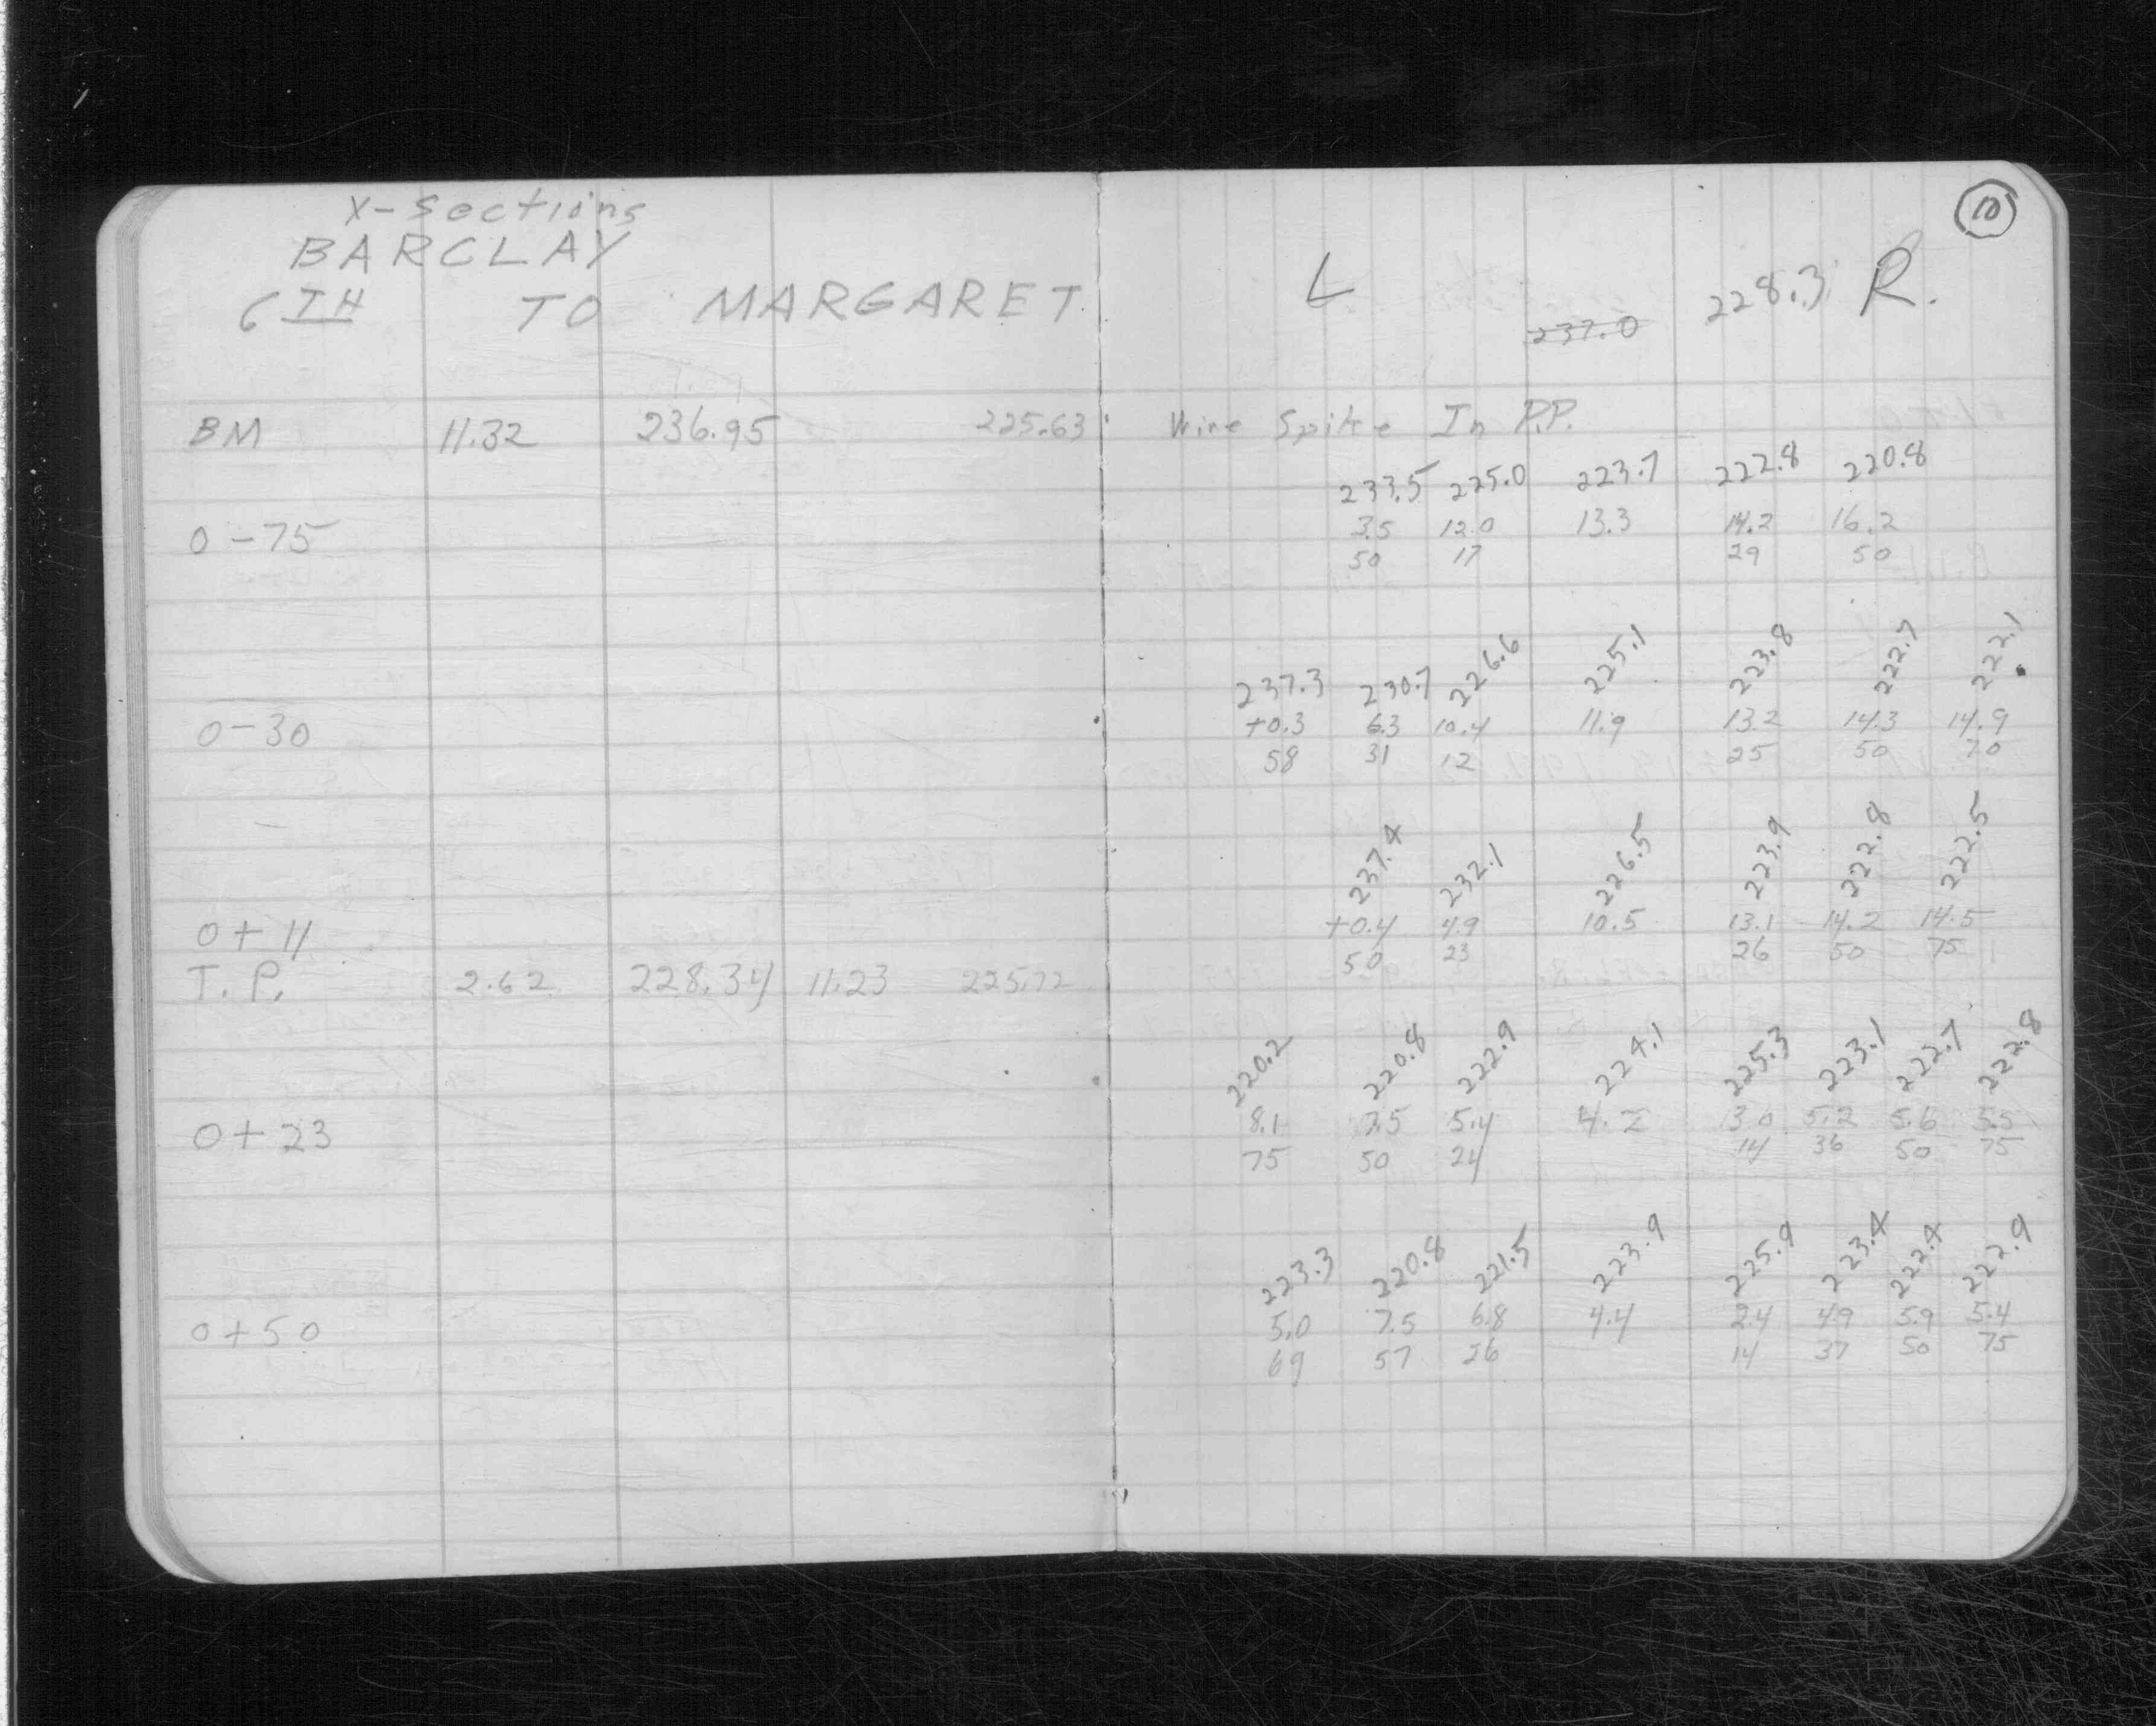 X-Sections
BARCLAY
6TH TO MARGARET
10
L 237.0 228.3 R.
BM 11.32 236.95 225.63 Wire Spike In P.P.
233.5 225.0 223.7 222.8 220.8
0-75 3.5 12.0 13.3 14.2 16.2
50 17 29 50
237.3 230.7 226.6 225.1 223.8 222.7 222.1
0-30 +0.3 6.3 10.4 11.9 13.2 14.3 14.9
58 31 12 25 50 70
237.4 232.1 226.5 223.9 222.8 222.5
0+11 +0.4 4.9 10.5 13.1 14.2 14.5
50 23 26 50 75
T.P. 2.62 228.34 11.23 225.72
220.2 220.8 222.9 224.1 225.3 223.1 222.7 222.8
0+23 8.1 7.5 5.4 4.2 3.0 5.2 5.6 5.5
75 50 24 14 36 50 75
223.3 220.8 221.5 223.9 225.9 223.4 222.4 222.9
0+50 5.0 7.5 6.8 4.4 2.4 4.9 5.9 5.4
69 57 26 14 37 50 75